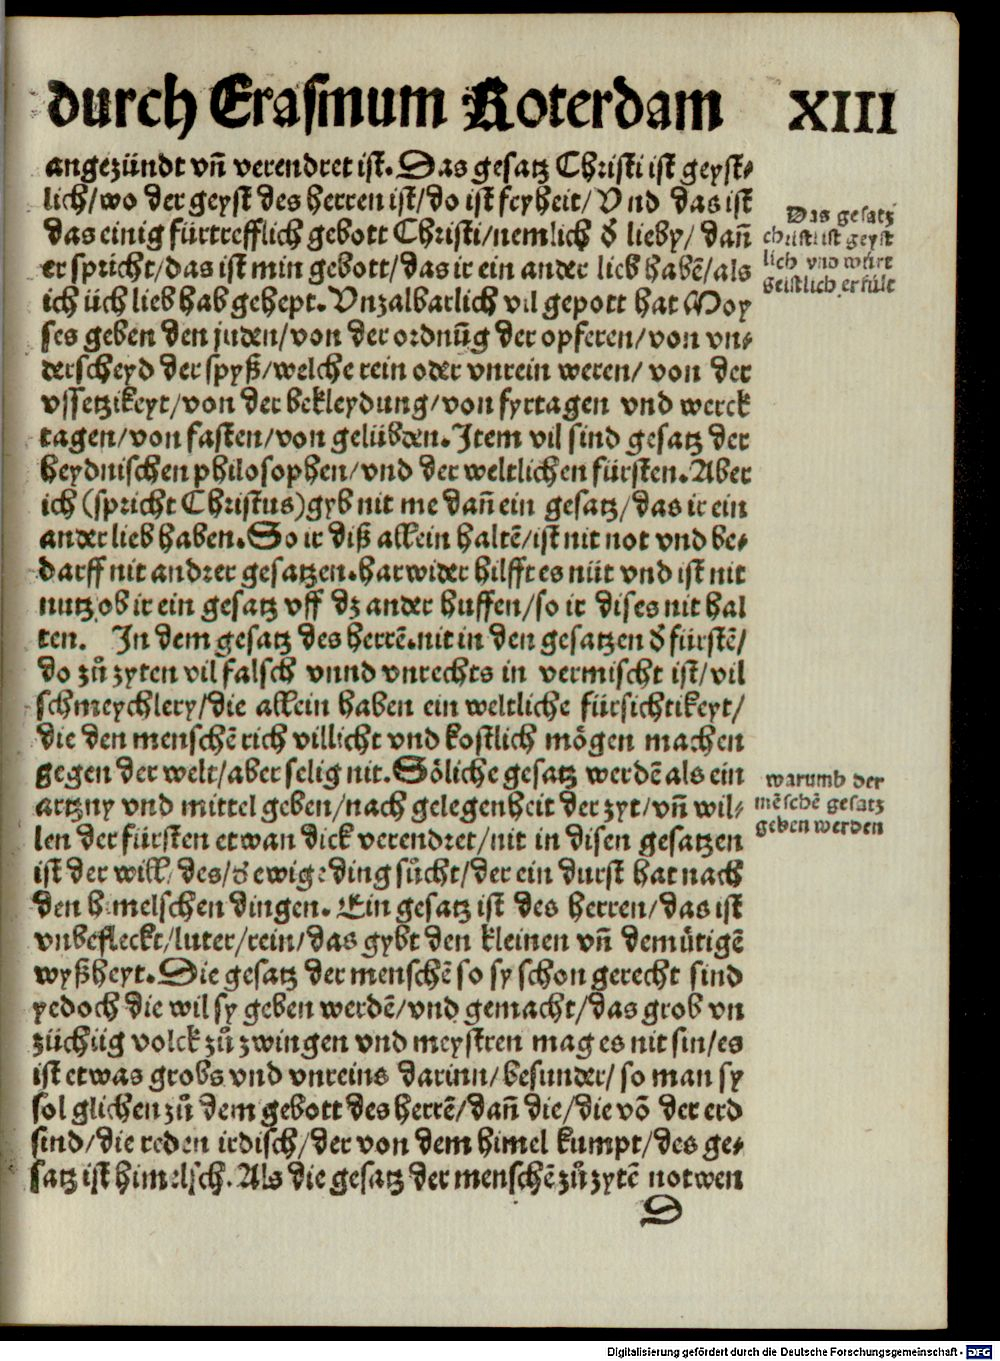 durch Erasmum Roterdam XIII
angezündt vñ verendret ist. Das gesatz Christi ist geyst-
lich/wo der geyst des herren ist/do ist fryheit/ Vnd das ist
das einig fürtrefflich gebott Christi/nemlich d̕ lieby/ dañ
er spricht/das ist min gebott/das ir ein ander lieb habẽ/als
ich üch lieb hab gehept. Vnzalbarlich vil gepott hat Moy
ses geben den juden/von der ordnũg der opferen/von vn-
derscheyd der spyß/welche rein oder vnrein weren/ von der
vssetzikeyt/von der bekleydung/von fyrtagen vnd werck
tagen/von fasten/von gelübden. Item vil sind gesatz der
heydnischen philosophen/vnd der weltlichen fürsten. Aber
ich (spricht Christus) gyb nit me dañ ein gesatz/das ir ein
ander lieb haben. So ir diß allein haltẽ/ist nit not vnd be-
darff nit andrer gesatzen. harwider hilfft es nüt vnd ist nit
nutz ob ir ein gesatz vff dz ander huffen/so ir dises nit hal
ten. In dem gesatz des herrẽ. nit in den gesatzen d̕ fürstẽ/
do zů zyten vil falsch vnnd vnrechts in vermischt ist/vil
schmeychlery/die allein haben ein weltliche fürsichtikeyt/
die den menschẽ rich villicht vnd kostlich mögen machen
gegen der welt/aber selig nit. Söliche gesatz werdẽ als ein
artzny vnd mittel geben/nach gelegenheit der zyt/vñ wil-
len der fürsten etwan dick verendret/nit in disen gesatzen
ist der will/des/d̕ ewige ding sůcht/der ein durst hat nach
den himelschen dingen. Ein gesatz ist des herren/das ist
vnbefleckt/luter/rein/das gybt den kleinen vñ demütigẽ
wyßheyt. Die gesatz der menschẽ so sy schon gerecht sind
yedoch die wil sy geben werdẽ/vnd gemacht/das grob vn
züchtig volck zů zwingen vnd meystren mag es nit sin/es
ist etwas grobs vnd vnreins darinn/besunder/ so man sy
sol glichen zů dem gebott des herrẽ/dañ die/die võ der erd
sind/die reden irdisch/der von dem himel kumpt/des ge-
satz ist himelsch. Als die gesatz der menschẽ zů zytẽ notwen
D
Das gesatz
christi ist geyst
lich vnd würt
geistlich erfült
warumb der
mẽschẽ gesatz
geben werden
Digitalisierung gefördert durch die Deutsche Forschungsgemeinschaft - DFG